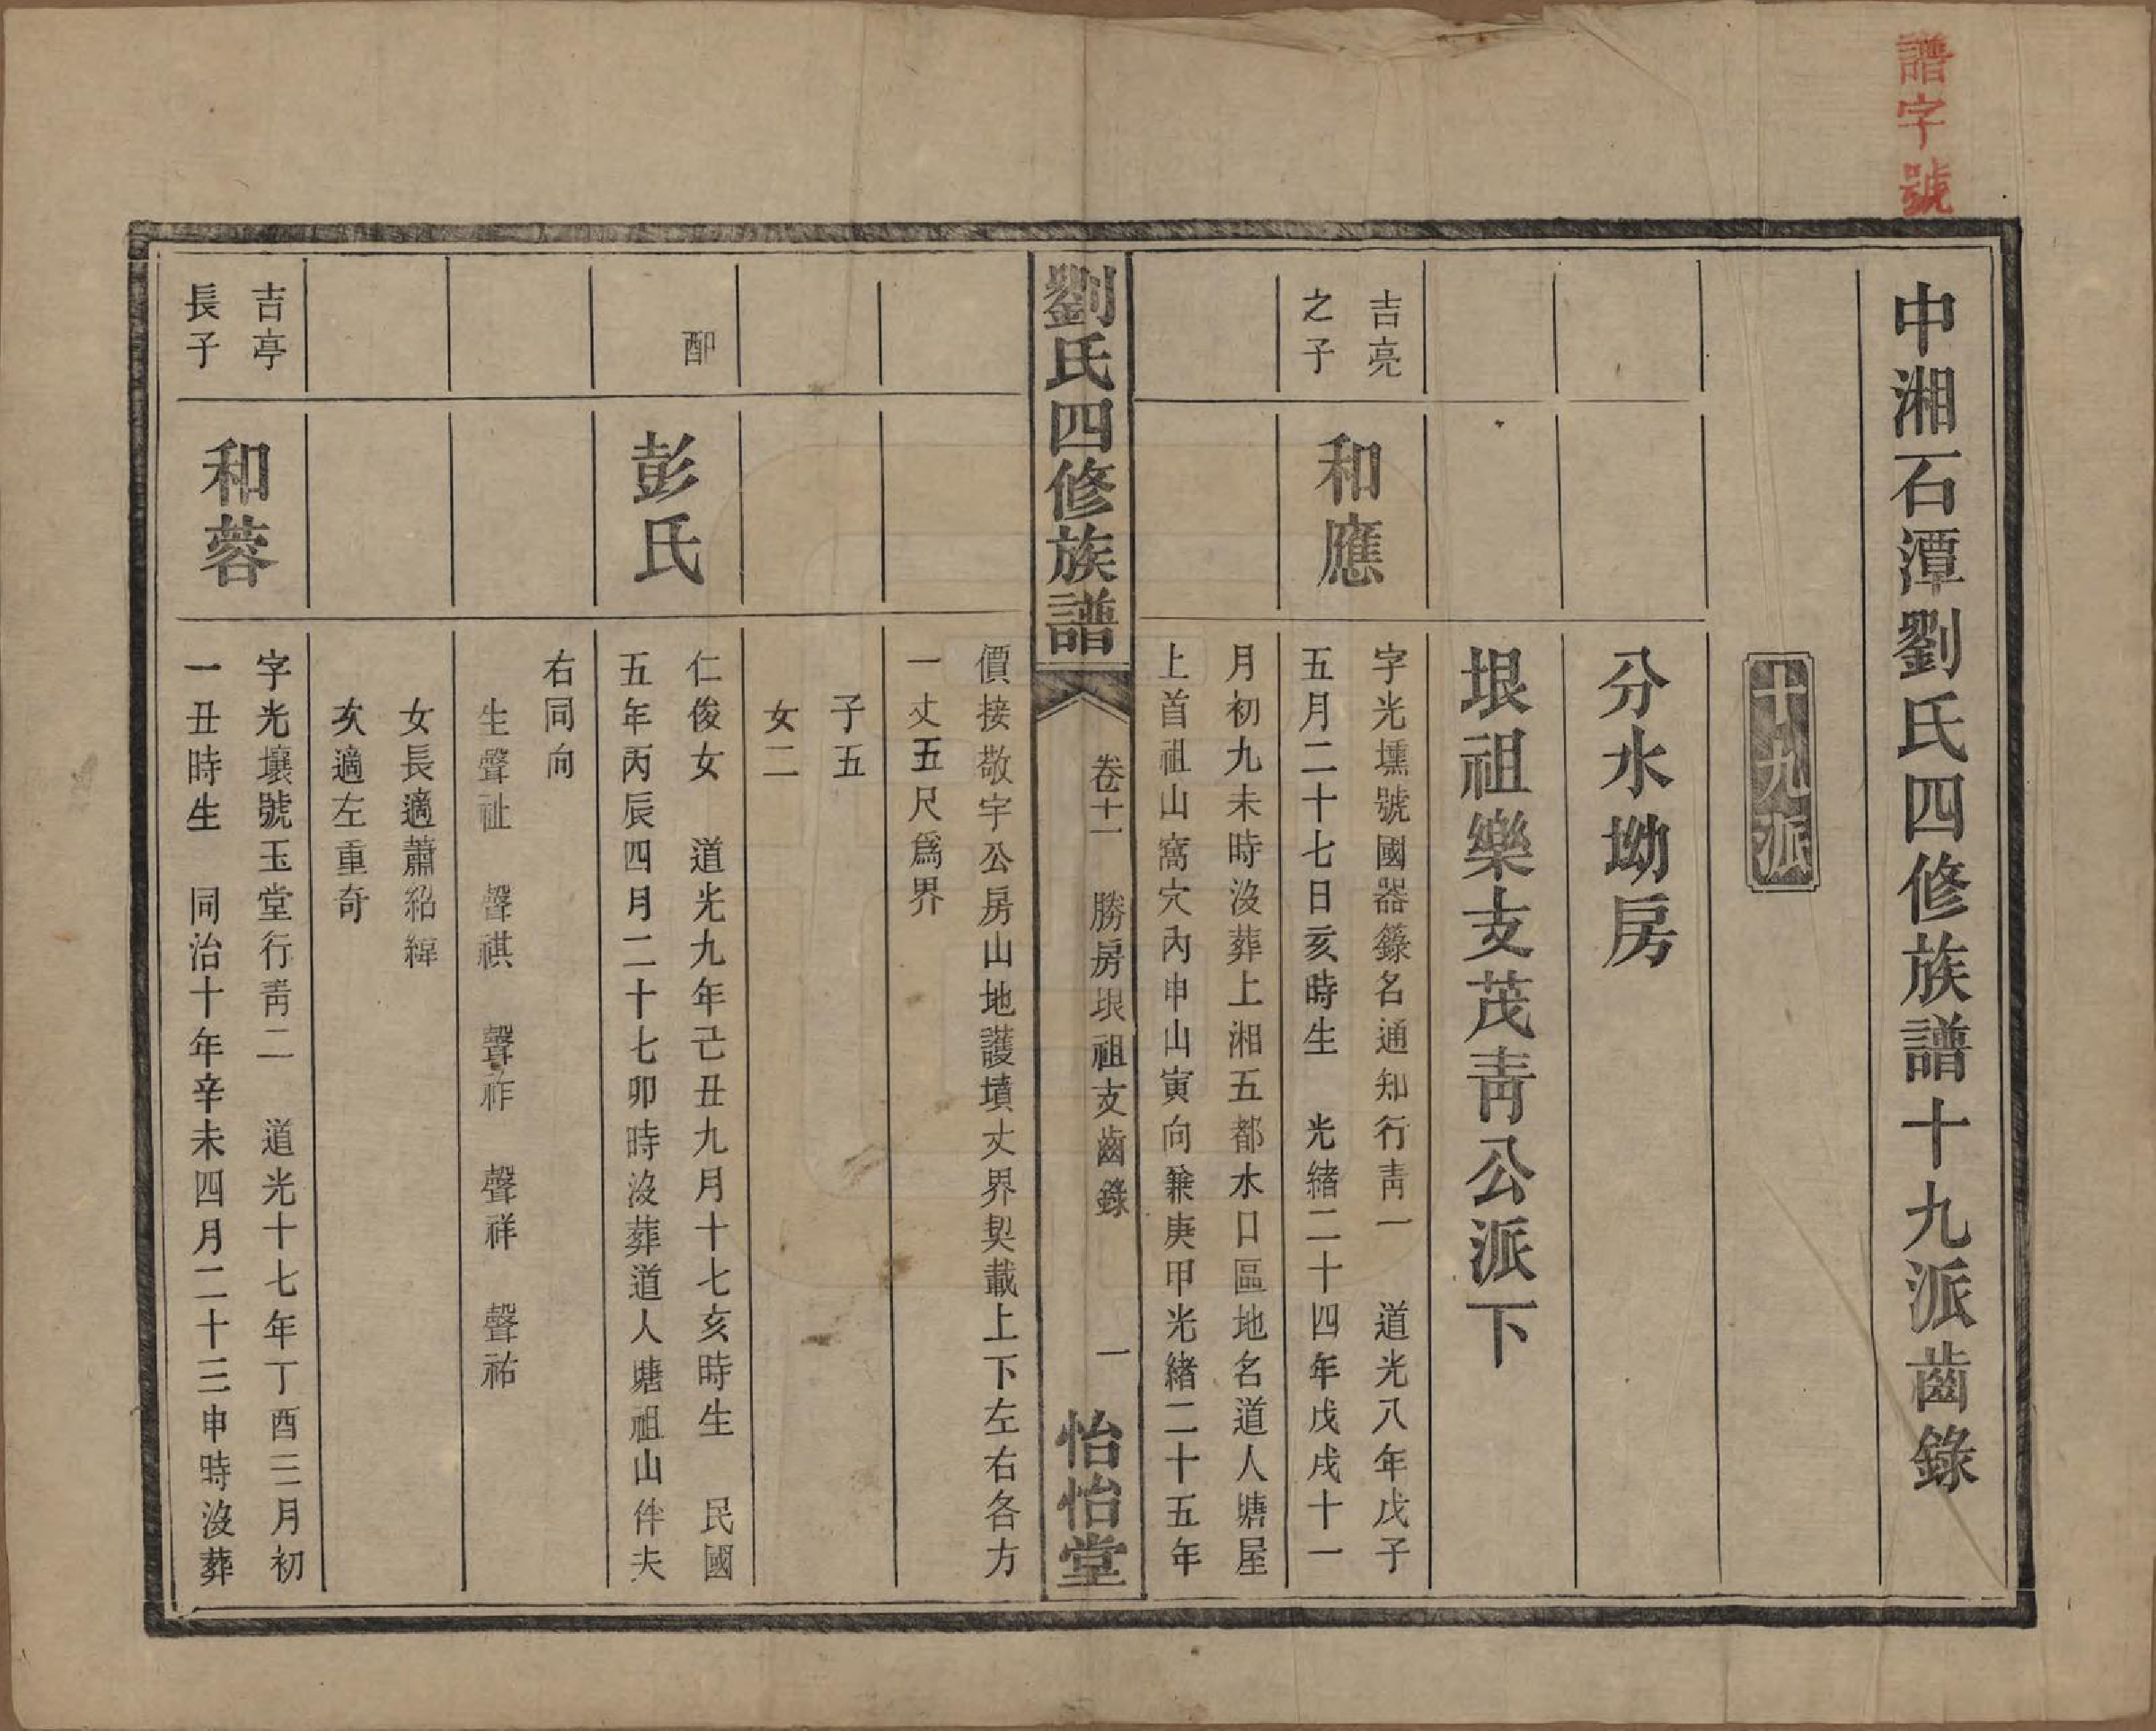 譜字號
中湘石潭劉氏四修族譜十九派齒錄
十九派
分水坳房
垠祖樂支茂靑公派下
吉亮
之子
和應
字光壎號國器籙名通知行靑一　道光八年戊子
五月二十七日亥時生　光緒二十四年戊戌十一
月初九未時沒葬上湘五都水口區地名道人塘屋
上首祖山窩穴內申山寅向兼庚甲光緒二十五年
劉氏四修族譜
卷十一　勝房垠祖支齒錄　一
怡怡堂
價接敬宇公房山地護墳丈界契載上下左右各方
一丈五尺爲界
子五
女二
配
彭氏
仁俊女　道光九年己丑九月十七亥時生　民國
五年丙辰四月二十七卯時沒葬道人塘祖山伴夫
右同向
生聲祉　聲祺　聲祚　聲祥　聲祐
女長適蕭紹緯
次適左重奇
吉亭
長子
和蓉
字光壤號玉堂行靑二　道光十七年丁酉三月初
一丑時生　同治十年辛未四月二十三申時沒葬